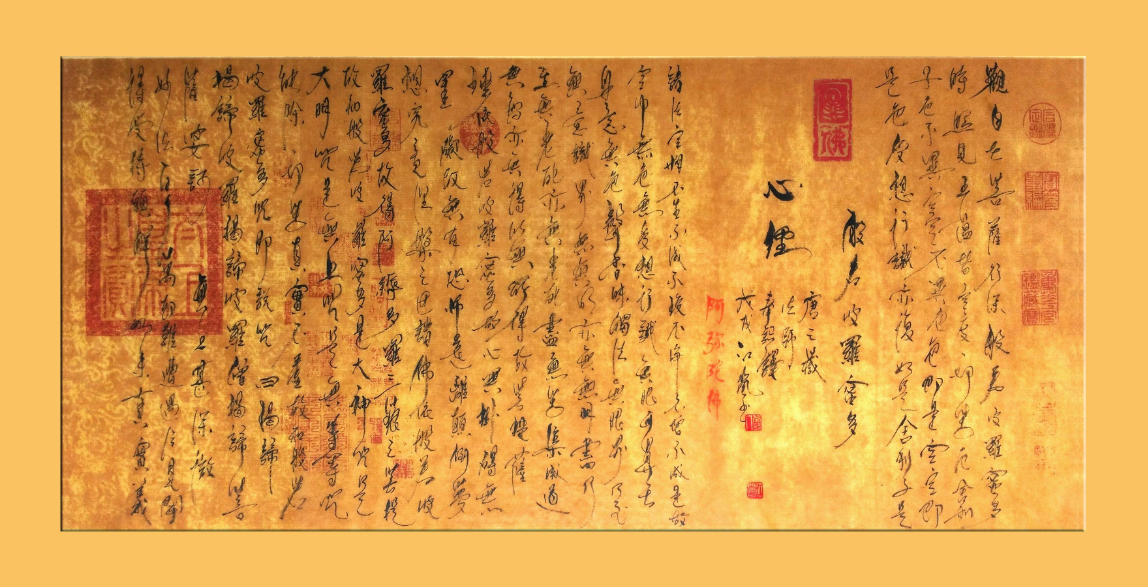 觀自在菩薩行深般若波羅蜜多
時照見五蘊皆空度一切苦厄舍利
子色不異空空不異色色即是空空即
是色受想行識亦復如是舍利子是
般若波羅蜜多
心經
唐三藏
法師
奉詔譯
戊戌
阿弥陀佛
諸法空相不生不滅不垢不淨不增不減是故
空中無色無受想行識無眼耳鼻舌
身意無色聲香味觸法無眼界乃至
無意識界無無明亦無無明盡乃
至無老死亦無老死盡無苦集滅道
無智亦無得以無所得故菩提薩
埵依般若波羅蜜多故心無掛礙無
罣礙故無有恐怖遠離顛倒夢
想究竟涅槃三世諸佛依般若波
羅蜜多故得阿耨多羅三藐三菩提
故知般若波羅蜜多是大神咒是
大明咒是無上咒是無等等咒
能除一切苦真實不虛故說般若
波羅蜜多咒即說咒曰揭諦
揭諦波羅揭諦波羅僧揭諦菩
薩婆訶 無上甚深微
妙法百千萬劫難遭遇我今見聞
得受持願解如來真實義